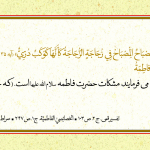 مِصْبَاحٌ الْمِصْبَاحُ فِي زُجَاجَةٍ الزُّجَاجَةُ كَأَنَّهَا كَوْكَبٌ دُرِّيٌّ» آیه ۳۵
فاطمة
می فرمایند مشکات حضرت فاطمه سلام الله علیها است. (که
تفسیر قمی، ج ۲ ص ۱۰۳ • الفضایل الفاطمیّة، ج۱ ص ۲۲۷ •